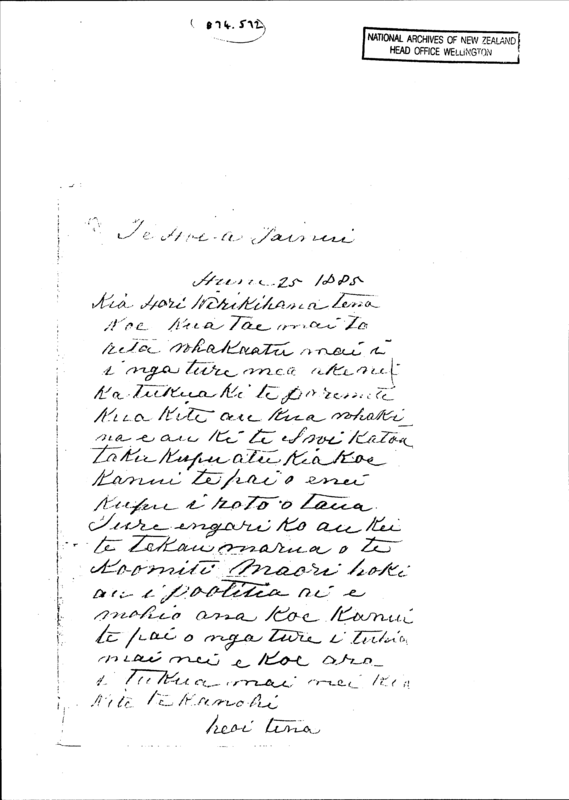 (874.572)
NATIONAL ARCHIVES OF NEW ZEALAND
HEAD OFFICE WELLINGTON
Te Awa a Tainui
Hune 25 1885
Kia Hori Wirikihana tena
Koe Kua Tae mai to
reta whakaatu mai i
i nga ture mea ake nei
Ka tukua ki te paremete
Kua Kite au kua whaki
na e au ki te Iwi Katoa
taku kupu atu Kia Koe
Kanui te pai o enei
kupu i roto o taua
Ture engari ko au kei
te tekau marua o te
Koomiti Maori hoki
au i pootitia ai e
mohio ana koe Kanui
te pai o nga ture i tuhia
mai nei e koe ara
i tukua mai nei kia
kite te kanohi
heoi tena